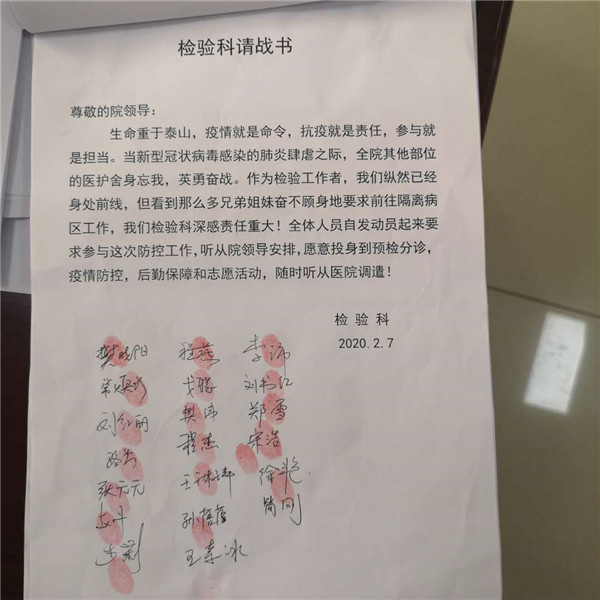 检验科请战书
尊敬的院领导：
生命重于泰山，疫情就是命令，抗疫就是责任，参与就
是担当。当新型冠状病毒感染的肺炎肆虐之际，全院其他部位
的医护舍身忘我，英勇奋战。作为检验工作者，我们纵然已经
身处前线，但看到那么多兄弟姐妹奋不顾身地要求前往隔离病
区工作，我们检验科深感责任重大！全体人员自发动员起来要
求参与这次防控工作，听从院领导安排，愿意投身到预检分诊，
疫情防控，后勤保障和志愿活动，随时听从医院调遣！
检 验 科
2020.2.7
程燕
刘书江
刘红丽 樊伟 郑雪
程杰 宋浩
张元元 徐艳